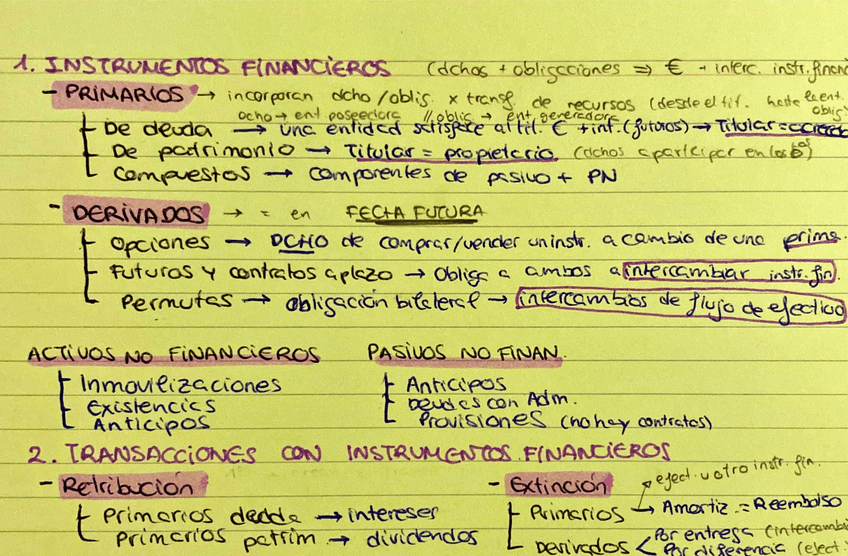 1. INSTRUMENTOS FINANCIEROS (dchos + obligaciones ⇒ € + interc. instr. financ
- PRIMARIOS → incorporan dcho/oblig. x transf. de recursos (desde el tit. hasta la ent.
dcho → ent poseedora // oblig → ent. generadora oblig
De deuda → una entidad satisface al tit. € + int. (futuros) → Titular = acreedo
De patrimonio → Titular = propietario (dchos a participar en los Bos)
Compuestos → componentes de pasivo + PN
- DERIVADOS → = en FECHA FUTURA
Opciones → DCHO de comprar/vender un instr. a cambio de una prima.
Futuros y contratos a plazo → Obliga a ambos a intercambiar instr. fin.
Permutas → obligación bilateral → intercambios de flujo de efectivo
ACTIVOS NO FINANCIEROS PASIVOS NO FINAN.
Inmovilizaciones Anticipos
Existencias Deudas con Adm.
Anticipos Provisiones (no hay contratos)
2. TRANSACCIONES CON INSTRUMENTOS FINANCIEROS
- Retribución - Extinción efect. u otro instr. fin.
Primarios deuda → intereses Primarios → Amortiz. = Reembolso
Primarios patrim → dividendos Derivados < Por entrega (intercambi
Por diferencia (efect.